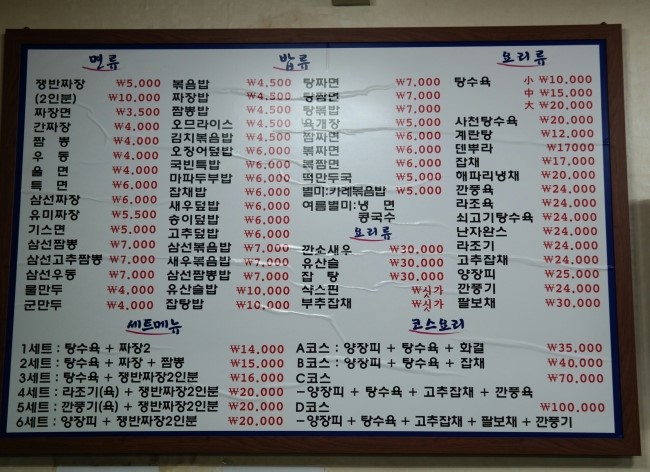 면류
쟁반짜장 ₩5.000
(2인분) ₩10.000
짜장면 ₩3.500
간짜장 ₩4.000
짬 뽕 ₩4.000
우 동 ₩4.000
울 면 ₩4.000
특 면 ₩6.000
삼선짜장 ₩6.000
유미짜장 ₩5.500
기스면 ₩5.000
삼선짬뽕 ₩7.000
삼선고추짬뽕 ₩7.000
삼선우동 ₩7.000
물만두 ₩4.000
군만두 ₩4.000
밥류
볶음밥 ₩4.500
짜장밥 ₩4.500
짬뽕밥 ₩4.500
오므라이스 ₩4.500
김치볶음밥 ₩4.500
오징어덮밥 ₩6.000
국빈특밥 ₩6.000
마파두부밥 ₩6.000
잡채밥 ₩6.000
새우덮밥 ₩6.000
송이덮밥 ₩6.000
고추덮밥 ₩6.000
삼선볶음밥 ₩7.000
새우볶음밥 ₩7.000
삼선짬뽕밥 ₩7.000
유산슬밥 ₩10.000
잡탕밥 ₩10.000
탕짜면 ₩7.000
탕짬면 ₩7.000
탕볶밥 ₩7.000
육개장 ₩5.000
짬짜면 ₩6.000
볶짜면 ₩6.000
볶짬면 ₩6.000
떡만두국 ₩5.000
별미:카레볶음밥 ₩5.000
여름별미:냉 면
콩국수
요리류
깐소새우 ₩30.000
유산슬 ₩30.000
잡 탕 ₩30.000
샥스핀 ₩싯가
부추잡채 ₩싯가
요리류
탕수육 小 ₩10.000
中 ₩15.000
大 ₩20.000
사천탕수육 ₩20.000
계란탕 ₩12.000
덴뿌라 ₩17000
잡채 ₩17.000
해파리냉채 ₩20.000
깐풍육 ₩24.000
라조육 ₩24.000
쇠고기탕수육 ₩24.000
난자완스 ₩24.000
라조기 ₩24.000
고추잡채 ₩24.000
양장피 ₩25.000
깐풍기 ₩24.000
팔보채 ₩30.000
세트메뉴
1세트 : 탕수육 + 짜장2 ₩14.000
2세트 : 탕수육 + 짜장 + 짬뽕 ₩15.000
3세트 : 탕수육 + 쟁반짜장2인분 ₩16.000
4세트 : 라조기(육) + 쟁반짜장2인분 ₩20.000
5세트 : 깐풍기(육) + 쟁반짜장2인분 ₩20.000
6세트 : 양장피 + 쟁반짜장2인분 ₩20.000
코스요리
A코스 : 양장피 + 탕수육 + 화결 ₩35.000
B코스 : 양장피 + 탕수육 + 잡채 ₩40.000
C코스 ₩70.000
-양장피 + 탕수육 + 고추잡채 + 깐풍육
D코스 ₩100.000
-양장피 + 탕수육 + 고추잡채 + 팔보채 + 깐풍기